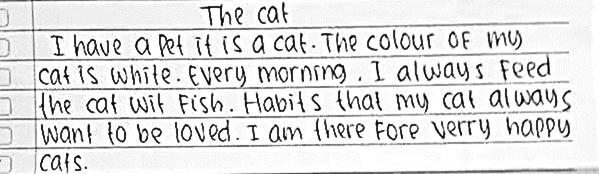 The cat
I have a Pet it is a cat. The colour OF my
cat is white. Every morning, I always Feed
the cat wit Fish. Habits that my cat always
Want to be loved. I am there Fore Verry happy
cats.